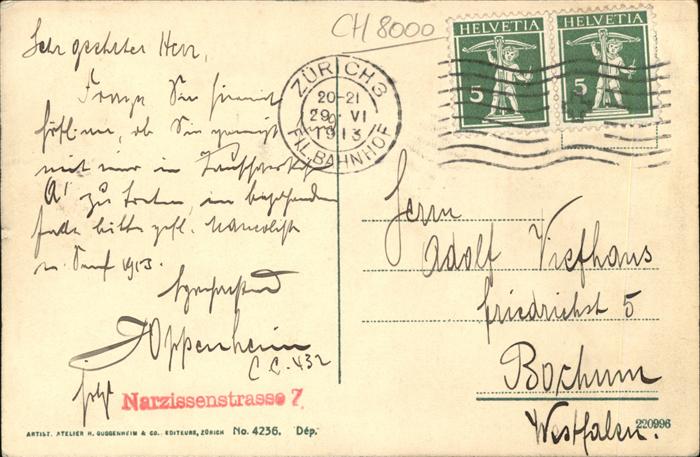 CH 8000
HELVETIA HELVETIA
5 5
ZÜRICH 3
20-21
29. VI
1913
FIL. BAHNHOF
Sehr geehrter Herr,
Frage Sie hiermit
höfl. an, ob Sie geneigt
mit mir in Tauschverkehr
zu treten, im bejahenden
Falle bitte gefl.
1913.
Hochachtend
JOppenheim
C.C. 432
jetzt
Narzissenstrasse 7.
Herrn
Adolf Viefhaus
Friedrichst 5
Bochum
Westfalen.
220996
ARTIST. ATELIER H. GUGGENHEIM & CO., EDITEURS, ZÜRICH No. 4236. Dép.